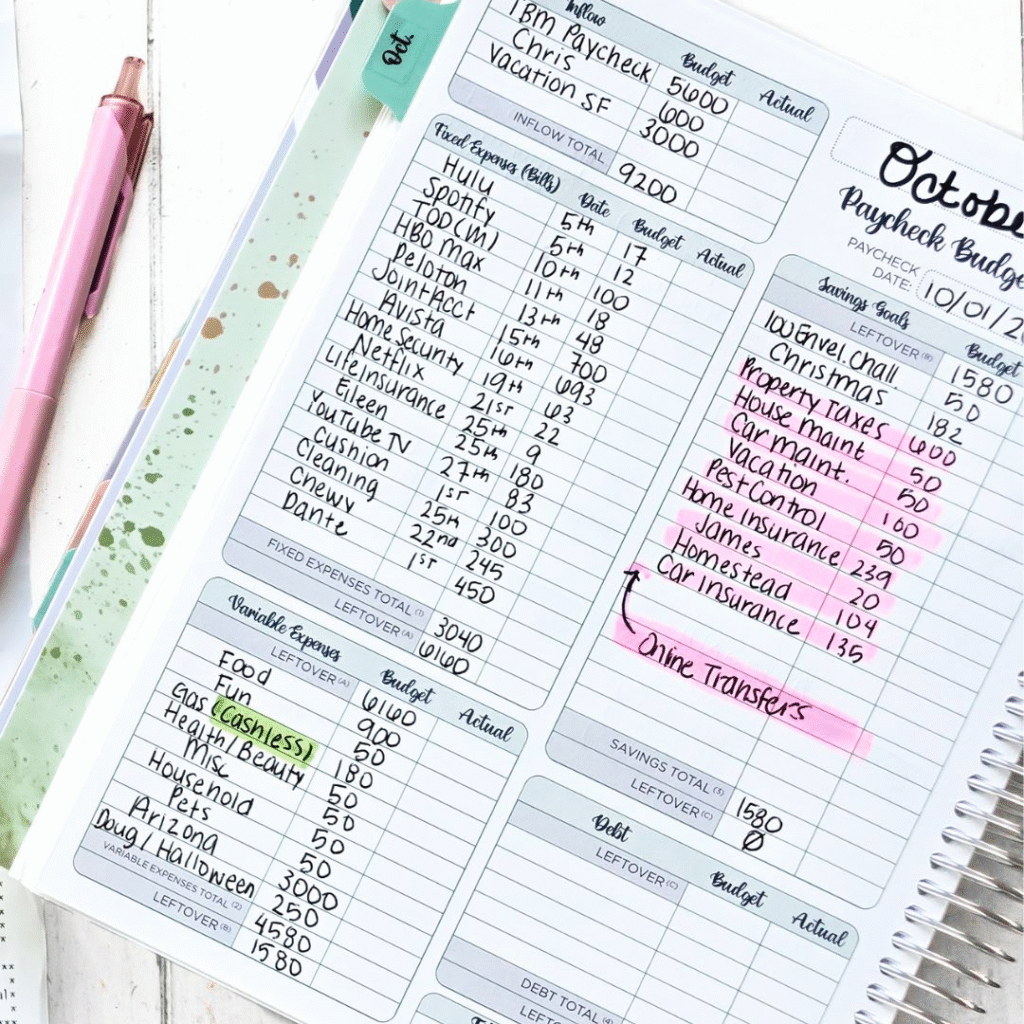 Oct.
Inflow Budget Actual
IBM Paycheck 5600
Chris 600
Vacation SF 3000
INFLOW TOTAL 9200
Fixed Expenses (Bills) Date Budget Actual
Hulu 5th 17
Spotify 5th 12
TOD(M) 10th 100
HBO Max 11th 18
Peloton 13th 48
Joint Acct 15th 700
Avista 16th 693
Home Security 19th 63
Netflix 21st 22
Life Insurance 25th 9
Eileen 25th 180
YouTube TV 27th 83
Cushion 1st 100
Cleaning 25th 300
Chewy 22nd 245
Dante 1st 450
FIXED EXPENSES TOTAL (1) 3040
LEFTOVER (A) 6160
Variable Expenses Budget Actual
LEFTOVER (A) 6160
Food 900
Fun 50
Gas (Cashless) 180
Health/Beauty 50
Misc 50
Household 50
Pets 50
Arizona 3000
Doug/Halloween 250
VARIABLE EXPENSES TOTAL (2) 4580
LEFTOVER (B) 1580
Paycheck
PAYCHECK
DATE: 10/01/2
Savings Goals Budget
LEFTOVER (B) 1580
100 Envel. Chall. 50
Christmas 182
Property Taxes 600
House Maint 50
Car Maint. 50
Vacation 100
Pest Control 50
Home Insurance 239
James 20
Homestead 104
Car Insurance 135
Online Transfers
SAVINGS TOTAL (3) 1580
LEFTOVER (C) Ø
Debt Budget Actual
LEFTOVER (C)
DEBT TOTAL (4)